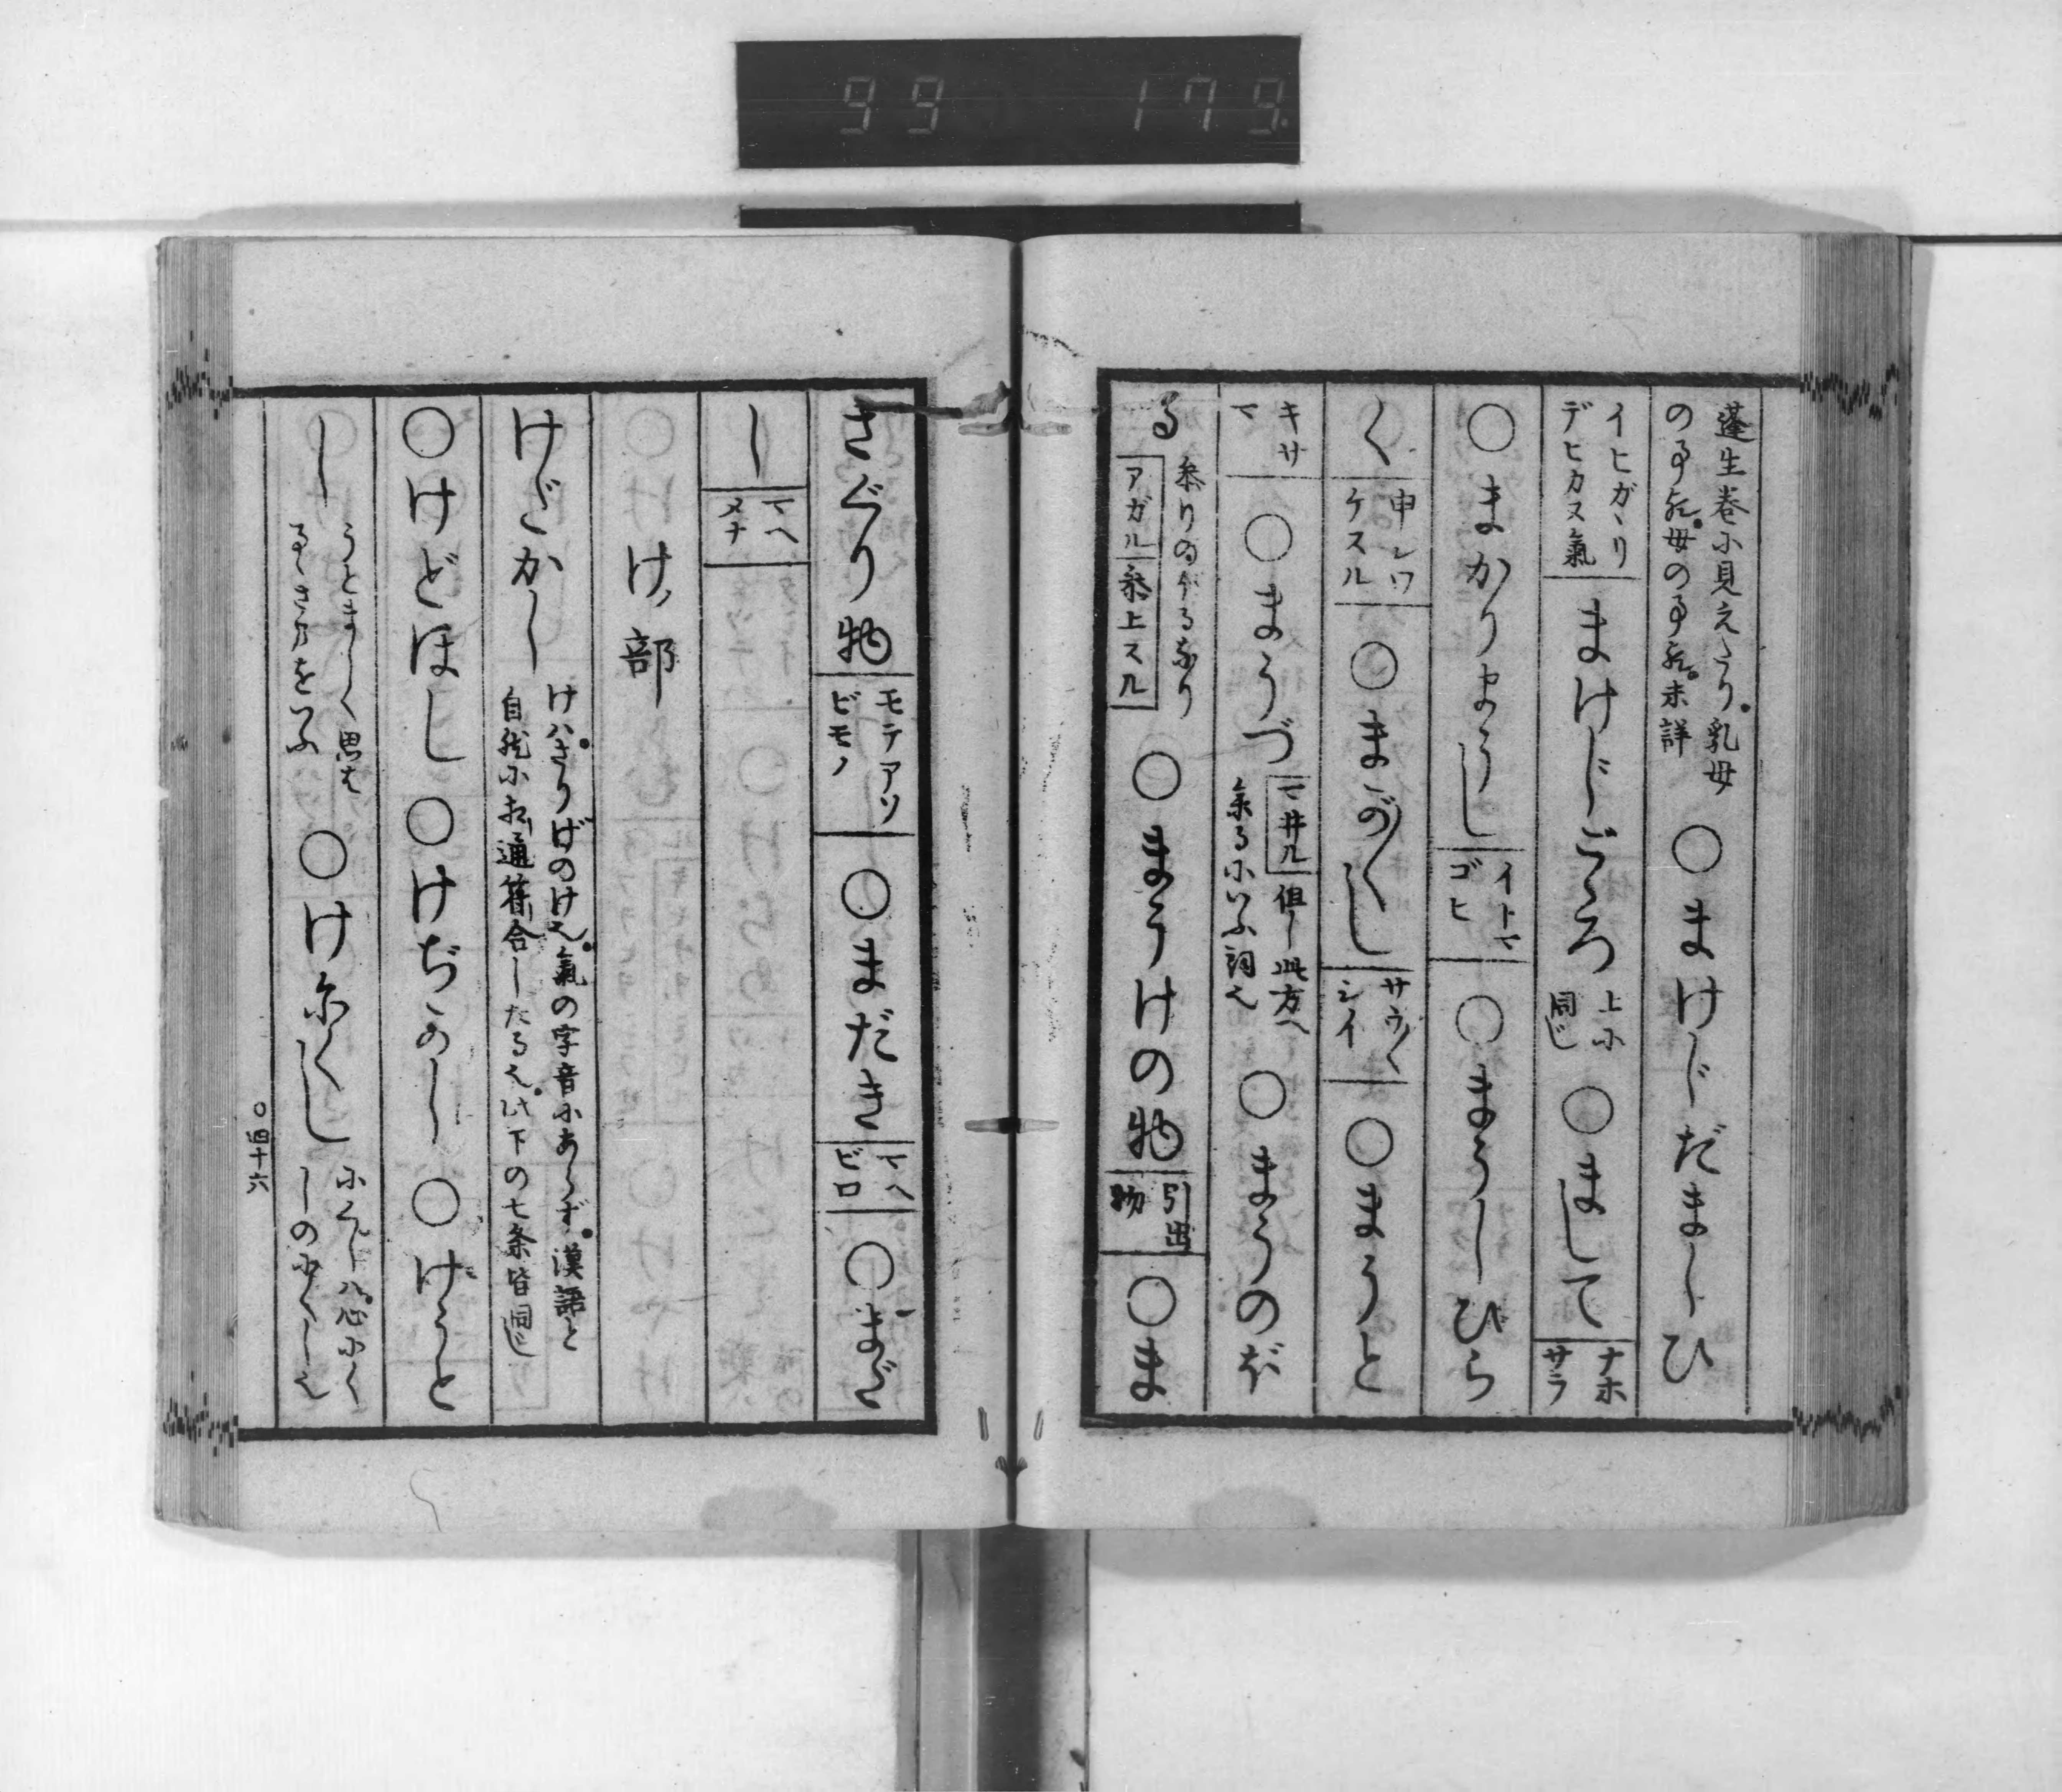 99 179.
蓬生巻に見えたり。乳母
の事
母の事
未詳
○まけじだましひ
イヒガヽリ
デヒカヌ氣
まけじごゝろ
上に
同じ
○まして
ナホ
サラ
○まかりまうし
イトマ
ゴヒ
○まうしひら
く
申シワ
ケスル
○まが〳〵し
サウ〴〵
シイ
○まうと
キサ
マ
○まうづ
マ井ル
但し此方へ
來るにいふ詞也
○まうのぼ
る
參りのぼるなり
アガル
參上スル
○まうけの物
引出
物
○ま
さぐり物
モテアソ
ビモノ
○まだき
マヘ
ビロ
○まだ
し
マヘ
カタ
け部
けぢかし
けはさりげのけ也。氣の字音にあらず。漢語と
自然に相通符合したる也。以下の七条皆同じ
○けどほし
○けぢかし
○けうと
し
うとましく思は
るゝさまをいふ
○けにくし
にくしは。心にく
しのにくし也
○四十六